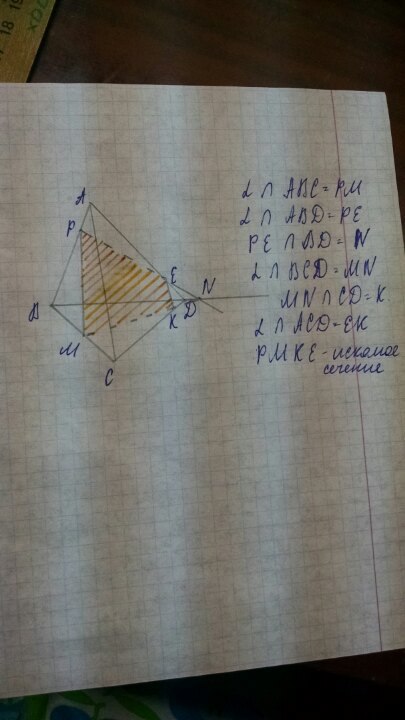 18 19
A
P
E
N
B
D
K
M
C
α ∩ ABC = PM
α ∩ ABD = PE
PE ∩ BD = N
α ∩ BCD = MN
MN ∩ CD = K.
α ∩ ACD = EK
PMKE - искомое
сечение